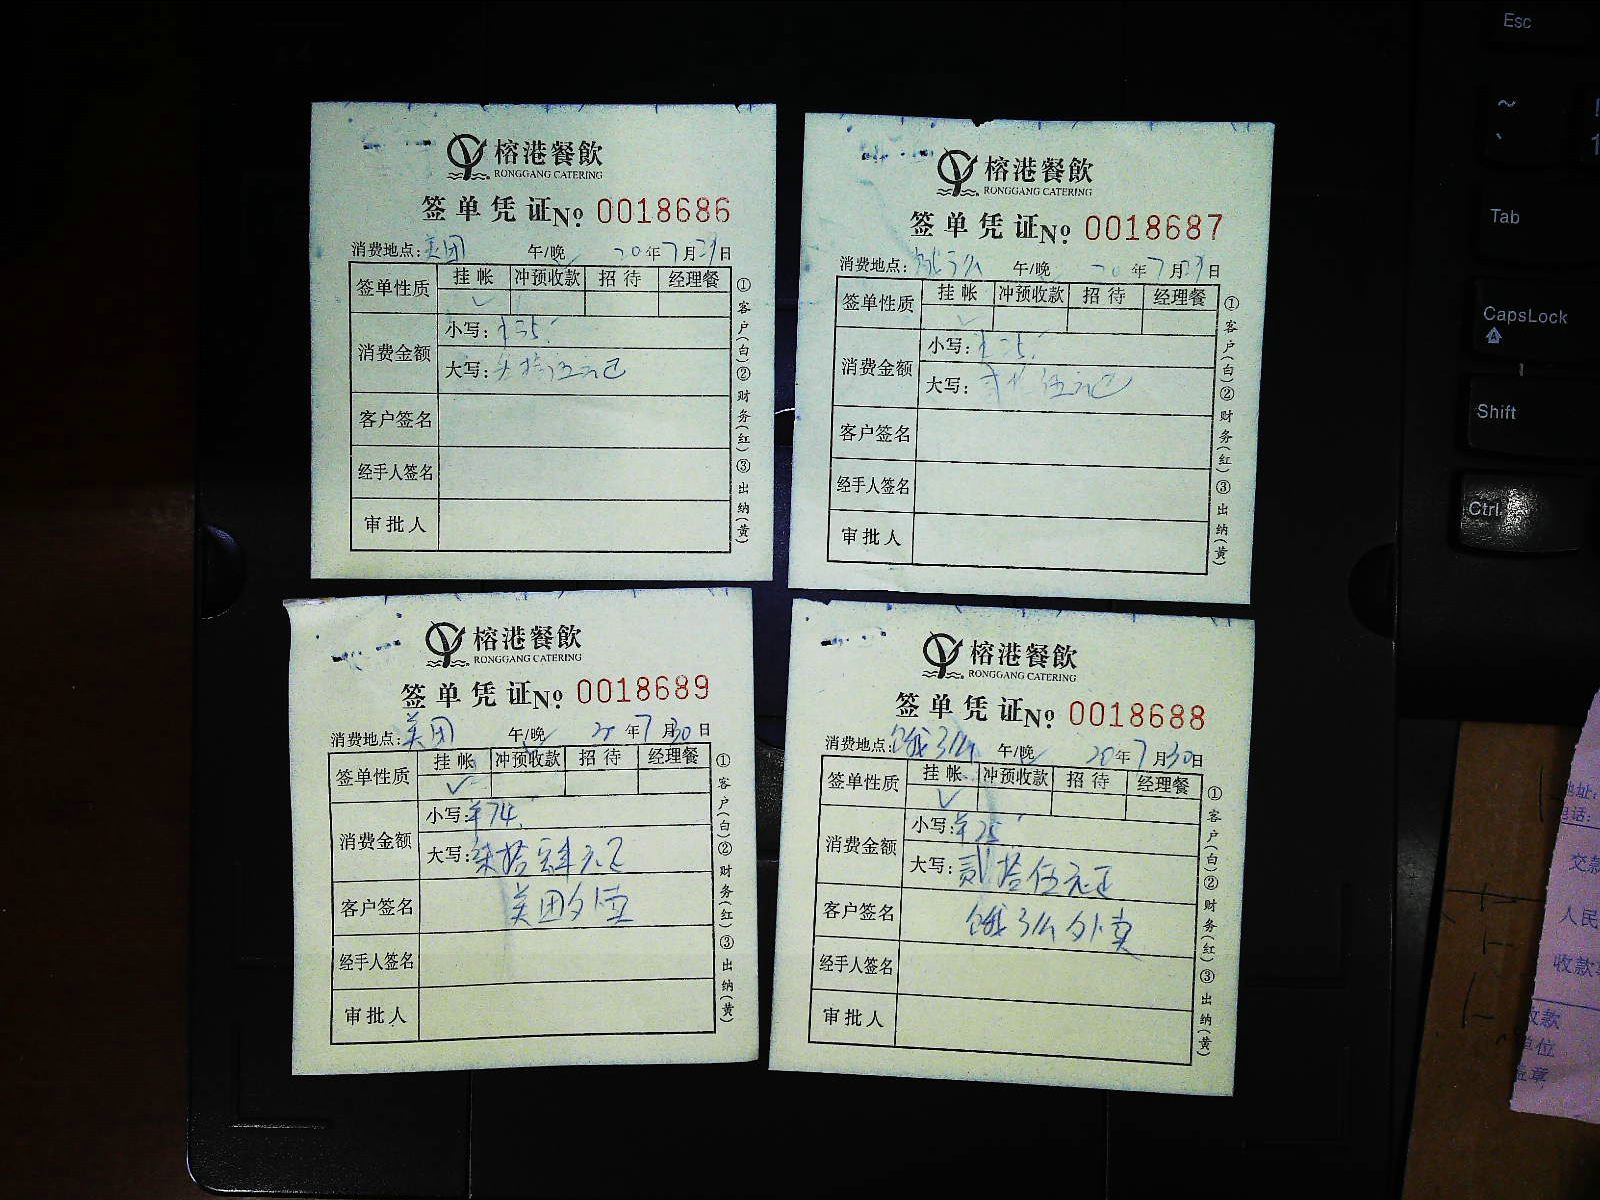 榕港餐飲
RONGGANG CATERING
签单凭证 No 0018686
消费地点: 美团 午/晚 20年7月29日
签单性质 挂帐 冲预收款 招待 经理餐
✓
消费金额 小写:
大写: 拾伍元正
客户签名
经手人签名
审批人
①客户(白)②财务(红)③出纳(黄)
榕港餐飲
RONGGANG CATERING
签单凭证 No 0018687
消费地点: 午/晚 20年7月29日
签单性质 挂帐 冲预收款 招待 经理餐
✓
消费金额 小写:
大写: 伍元正
客户签名
经手人签名
审批人
①客户(白)②财务(红)③出纳(黄)
榕港餐飲
RONGGANG CATERING
签单凭证 No 0018689
消费地点: 美团 午/晚 年7月30日
签单性质 挂帐 冲预收款 招待 经理餐
✓
消费金额 小写: ¥74
大写: 柒拾肆元正
客户签名 美团外卖
经手人签名
审批人
①客户(白)②财务(红)③出纳(黄)
榕港餐飲
RONGGANG CATERING
签单凭证 No 0018688
消费地点: 饿了么 午/晚 20年7月30日
签单性质 挂帐 冲预收款 招待 经理餐
✓
消费金额 小写: ¥25
大写: 贰拾伍元正
客户签名 饿了么外卖
经手人签名
审批人
①客户(白)②财务(红)③出纳(黄)
Esc
~
Tab
CapsLock
Shift
Ctrl
地址:
电话:
交款
人民
收款
收款
单位
盖章